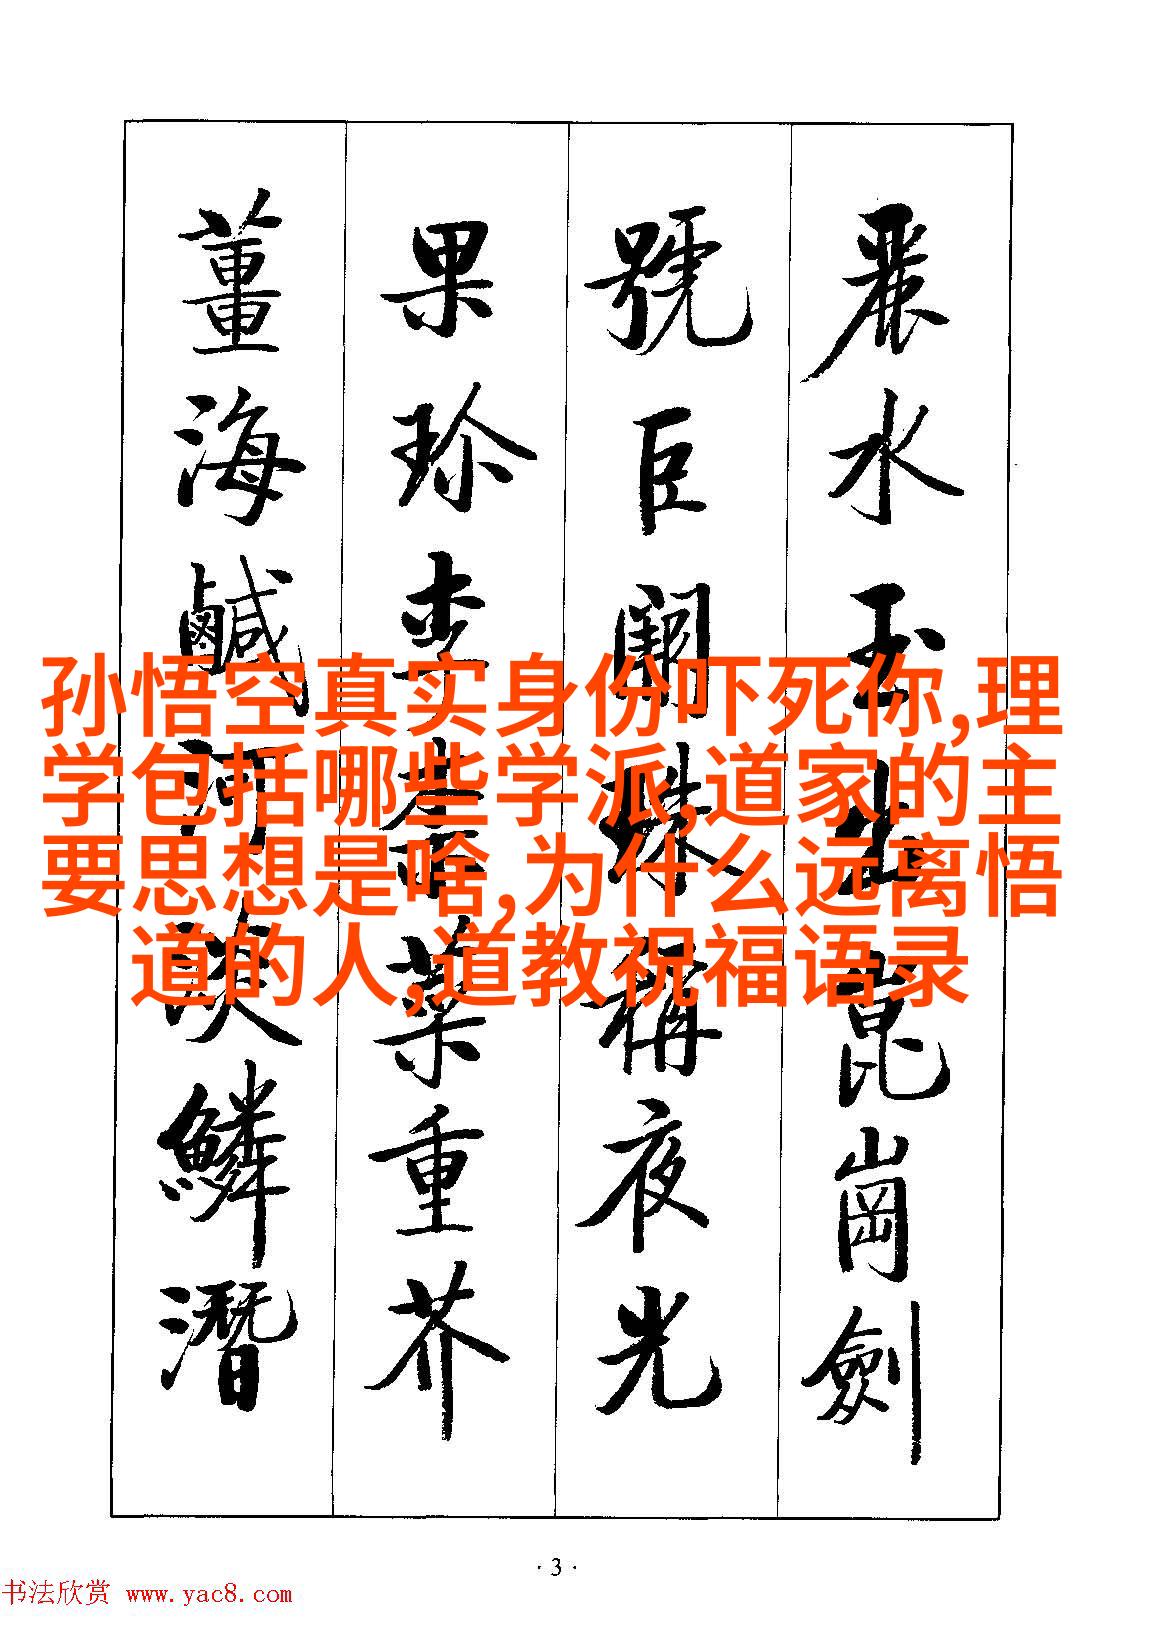 麗水玉出崑崗劍
號巨闕珠稱夜光
果珍李柰菜重芥
薑海鹹河淡鱗潛
孙悟空真实身份吓死你,理
学包括哪些学派,道家的主
要思想是啥,为什么远离悟
道的人,道教祝福语录
·3·
书法欣赏 www.yac8.com